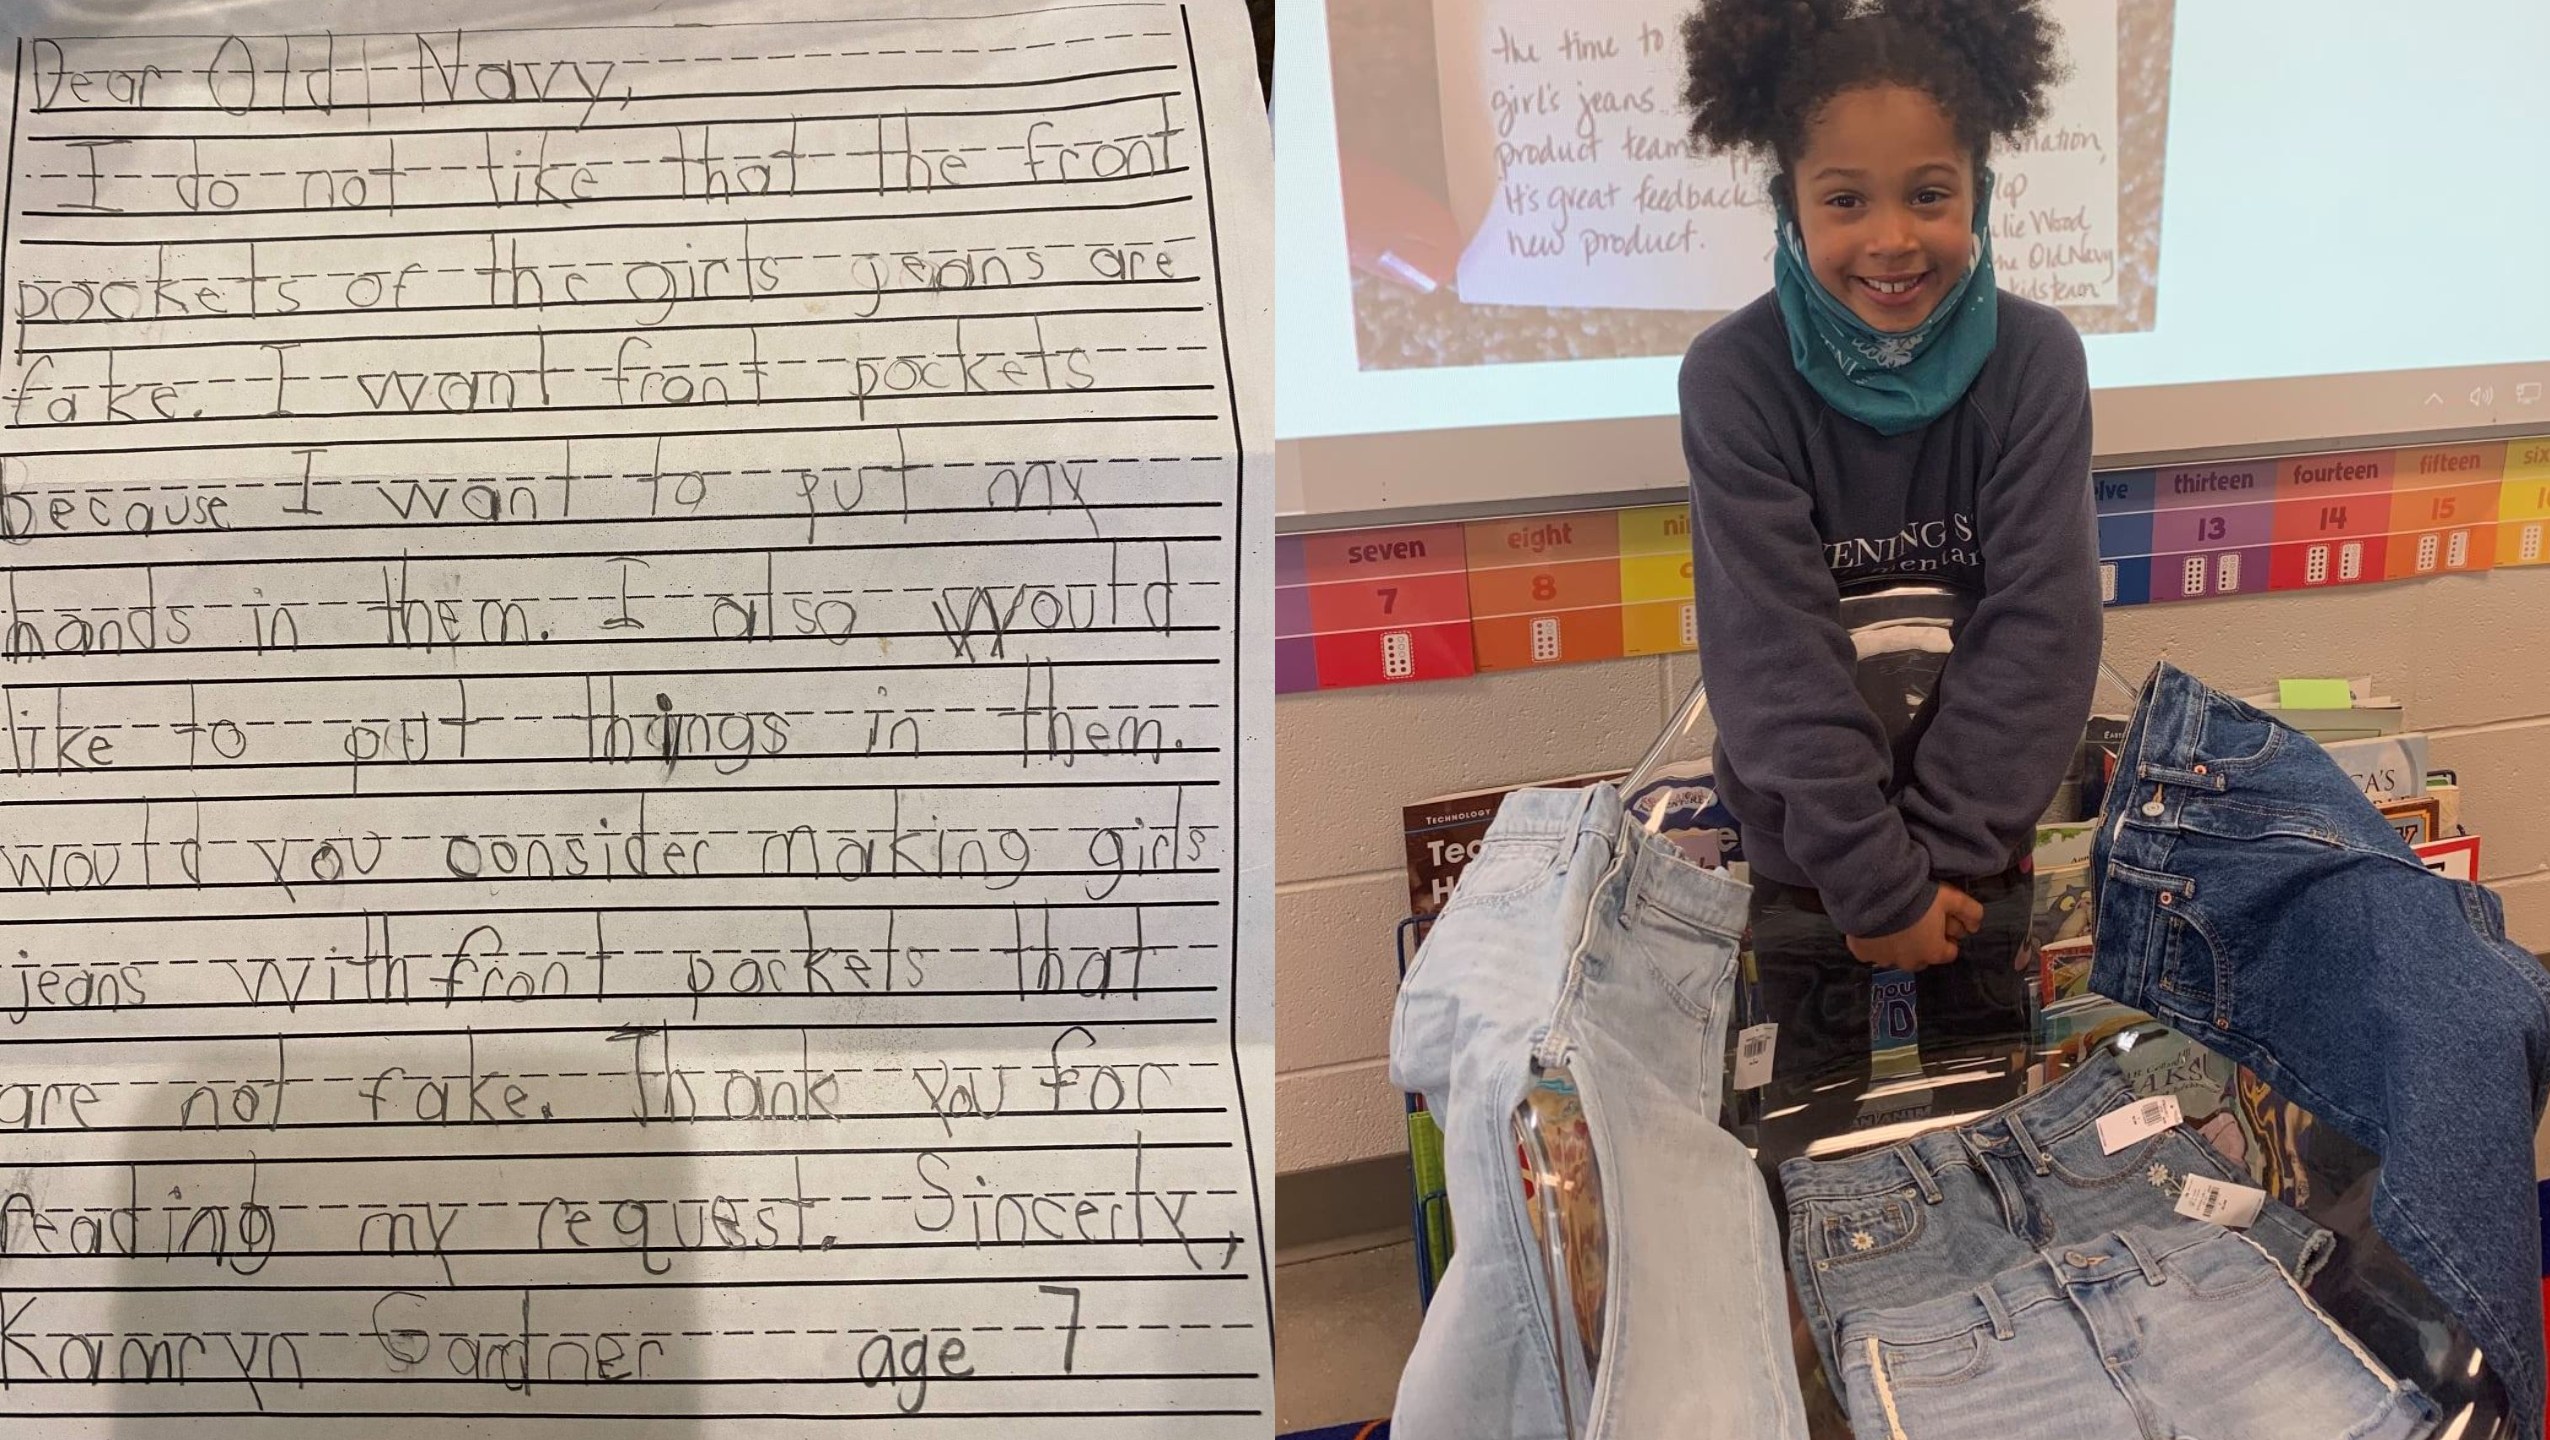 Dear Old Navy,
I do not like that the front
pockets of the girls jeans are
fake. I want front pockets
because I want to put my
hands in them. I also would
like to put things in them.
would you consider making girls
jeans with front pockets that
are not fake. Thank you for
reading my request. Sincerly,
Kamryn Gardner age 7
the time to
girl's jeans.
product team
It's great feedback
new product.
Old Navy
kids team
ENING S
seven
eight
thirteen
fourteen
fifteen
7
8
13
14
15
TECHNOLOGY